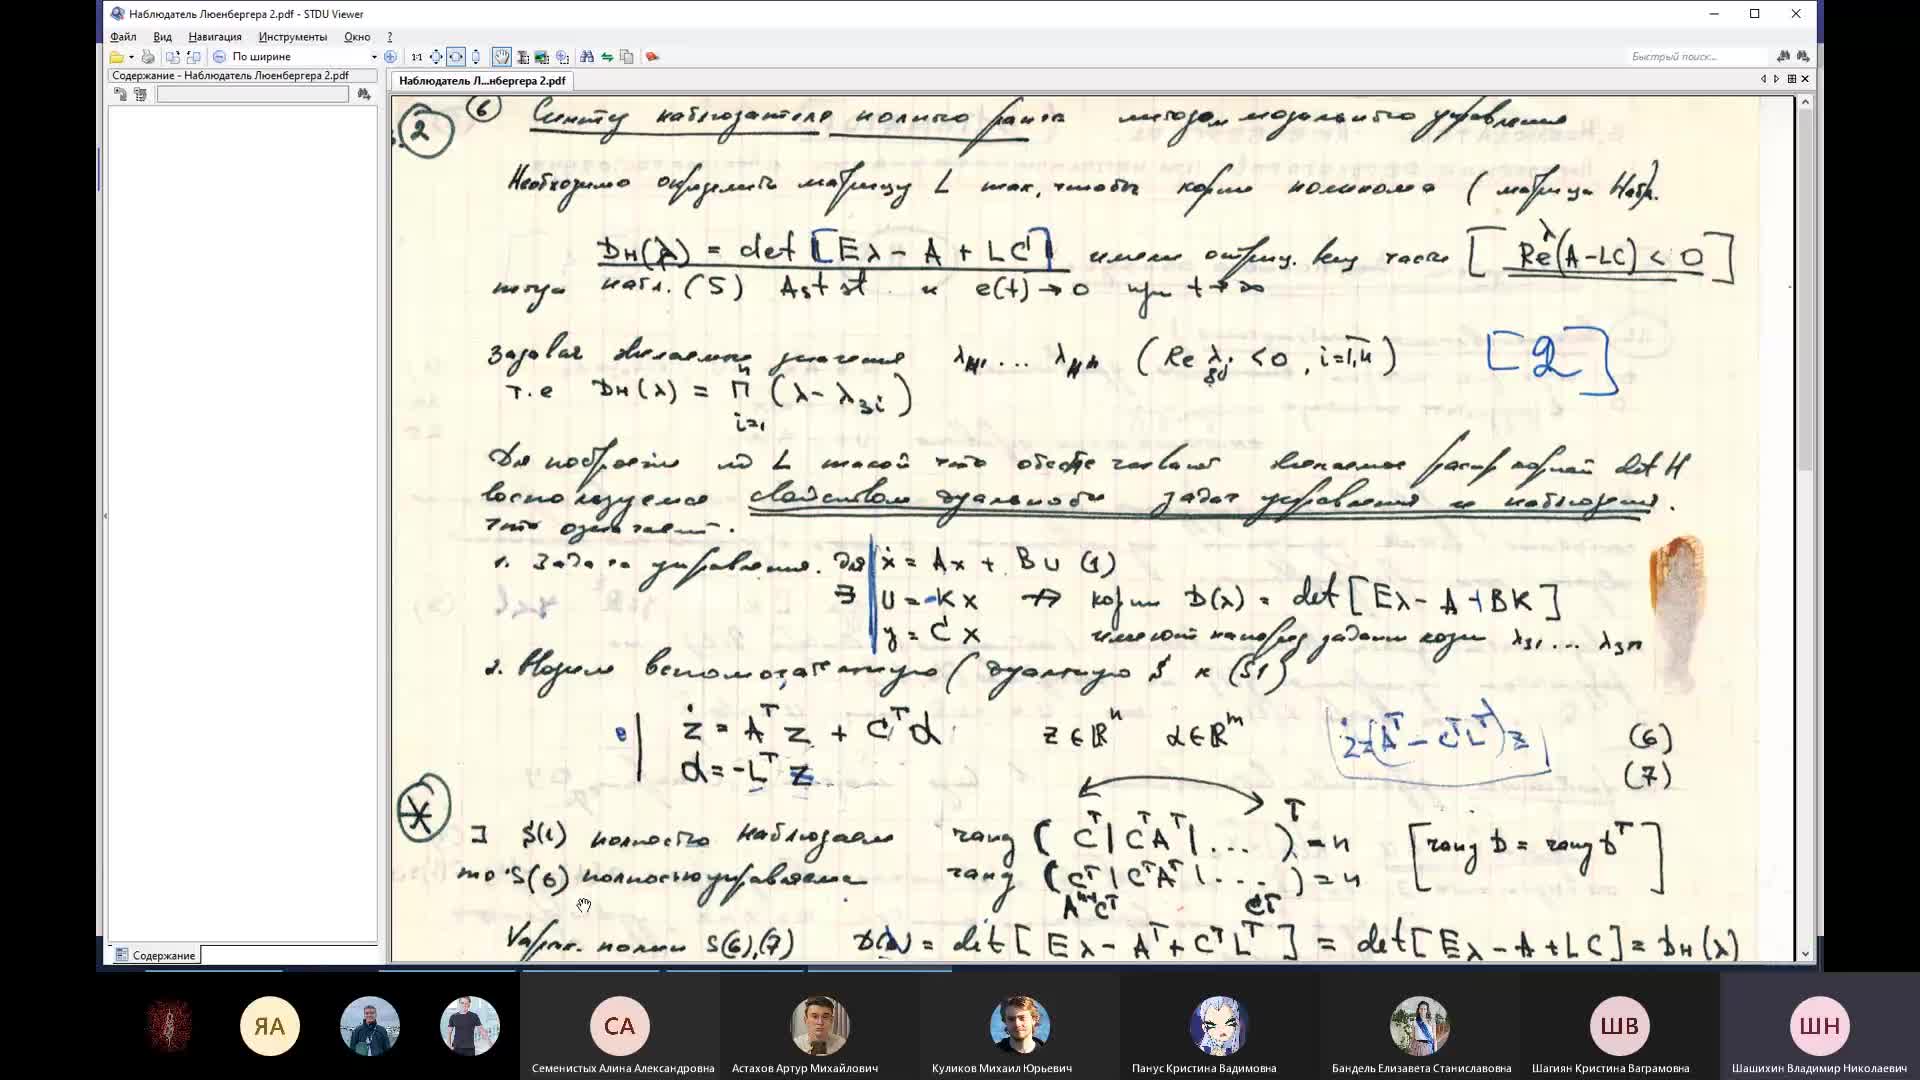 Наблюдатель Люенбергера 2.pdf - STDU Viewer
Файл Вид Навигация Инструменты Окно ?
По ширине 1:1 Быстрый поиск...
Содержание - Наблюдатель Люенбергера 2.pdf
Наблюдатель Л...нбергера 2.pdf
2 6 Синтез наблюдателя полного ранга методом модального управления
Необходимо определить матрицу L так, чтобы корни полинома (матрица Набл.
Dн(λ) = det [Eλ - A + LC] имели отриц. вещ части [Re λ(A-LC) < 0]
тогда набл. (5) As st и e(t) → 0 при t → ∞
Задавая желаемые значения λн1 ... λнn (Re λзi < 0, i=1,n) [2]
т.е Dн(λ) = Π (λ - λзi)
n
i=1
Для построения L такой что обеспечивает желаемое распр корней det H
воспользуемся свойством дуальности задач управления и наблюдения.
что означает.
1. Задача управления. Для ẋ = Ax + Bu (1)
∃ U = -Kx → корни D(λ) = det [Eλ - A + BK]
y = Cx имеют наперед заданные корни λз1 ... λзn
2. Введем вспомогательную (дуальную S к (S1)
ż = Aᵀz + Cᵀα z ∈ ℝⁿ α ∈ ℝᵐ ż=(Aᵀ - CᵀLᵀ)z (6)
α = -Lᵀz (7)
* ∃ S(1) полностью наблюдаема rang (Cᵀ | CᵀAᵀ | ... )ᵀ = n [rang D = rang Dᵀ]
то S(6) полностью управляема rang (Cᵀ | CᵀAᵀ | ... ) = n
Aⁿ⁻¹Cᵀ Cᵀ
Характ. полин S(6),(7) D(λ) = det [Eλ - Aᵀ + CᵀLᵀ] = det [Eλ - A + LC] = Dн(λ)
Содержание
ЯА СА ШВ ШН
Семенистых Алина Александровна Астахов Артур Михайлович Куликов Михаил Юрьевич Панус Кристина Вадимовна Бандель Елизавета Станиславовна Шагиян Кристина Ваграмовна Шашихин Владимир Николаевич